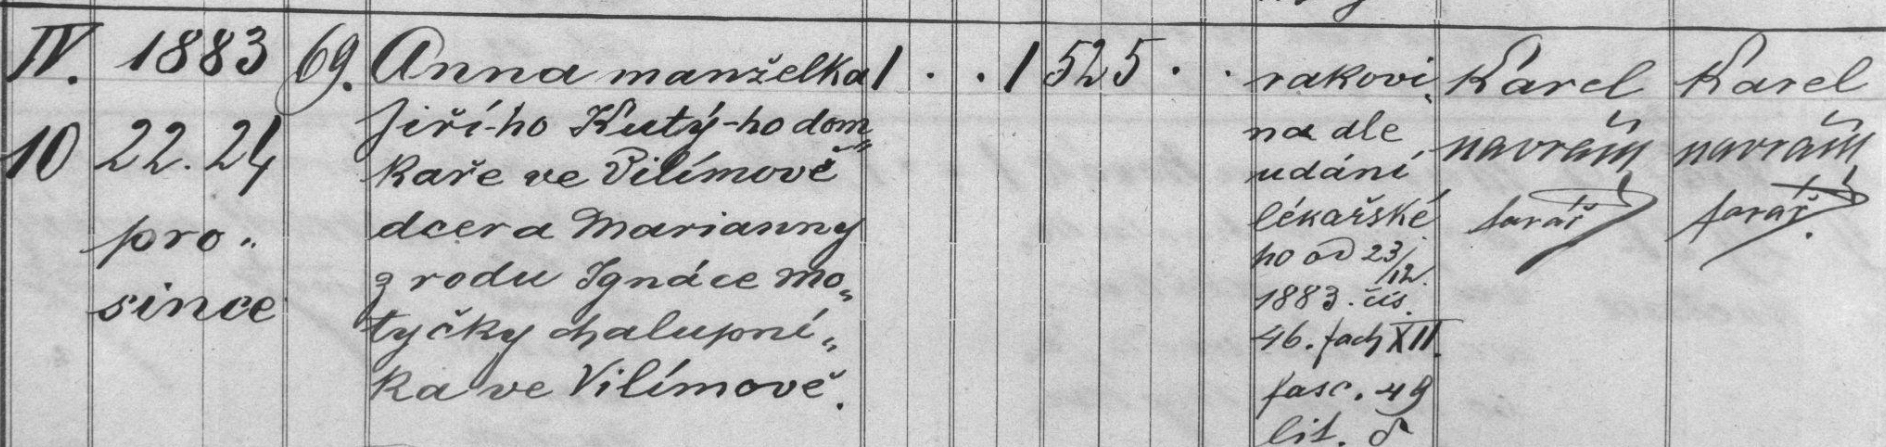 IV. 1883 69. Anna manželka 1 . . 1 52 5 . . rakovi„ Karel Karel
Jiří-ho Kutý-ho dom„
10 22. 24 kaře ve Vilímově na dle navrátil navrátil
udání
pro„ dcera Marianny lékařské farář farář.
z rodu Ignáce Mo„ ho od 23/12.
since tyčky chalupní„ 1883. čís.
46. fach XII.
ka ve Vilímově. fasc. 49
lit.